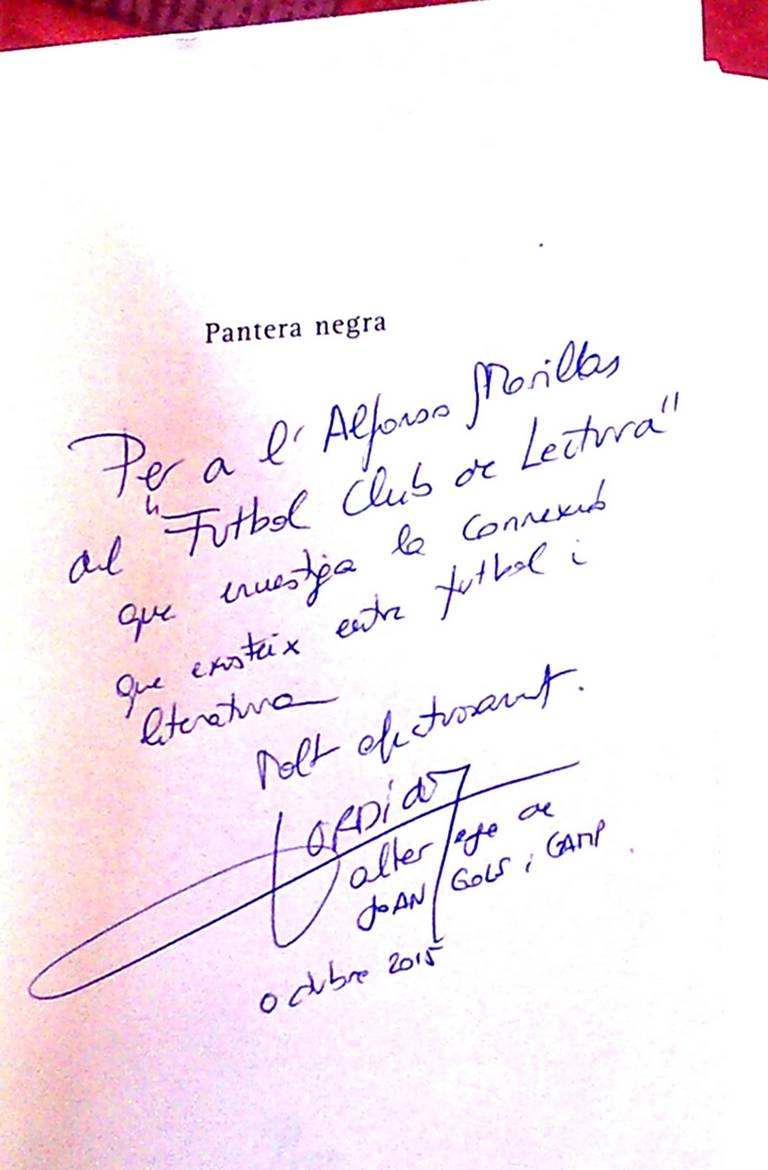 Pantera negra
Per a l'Alfonso Morillas
del "Futbol Club de Lectura"
que investiga la connexió
que existeix entre futbol i
literatura
Molt afectuosament.
JORDI
alter ego de
JOAN GOLS i CAMP
Octubre 2015